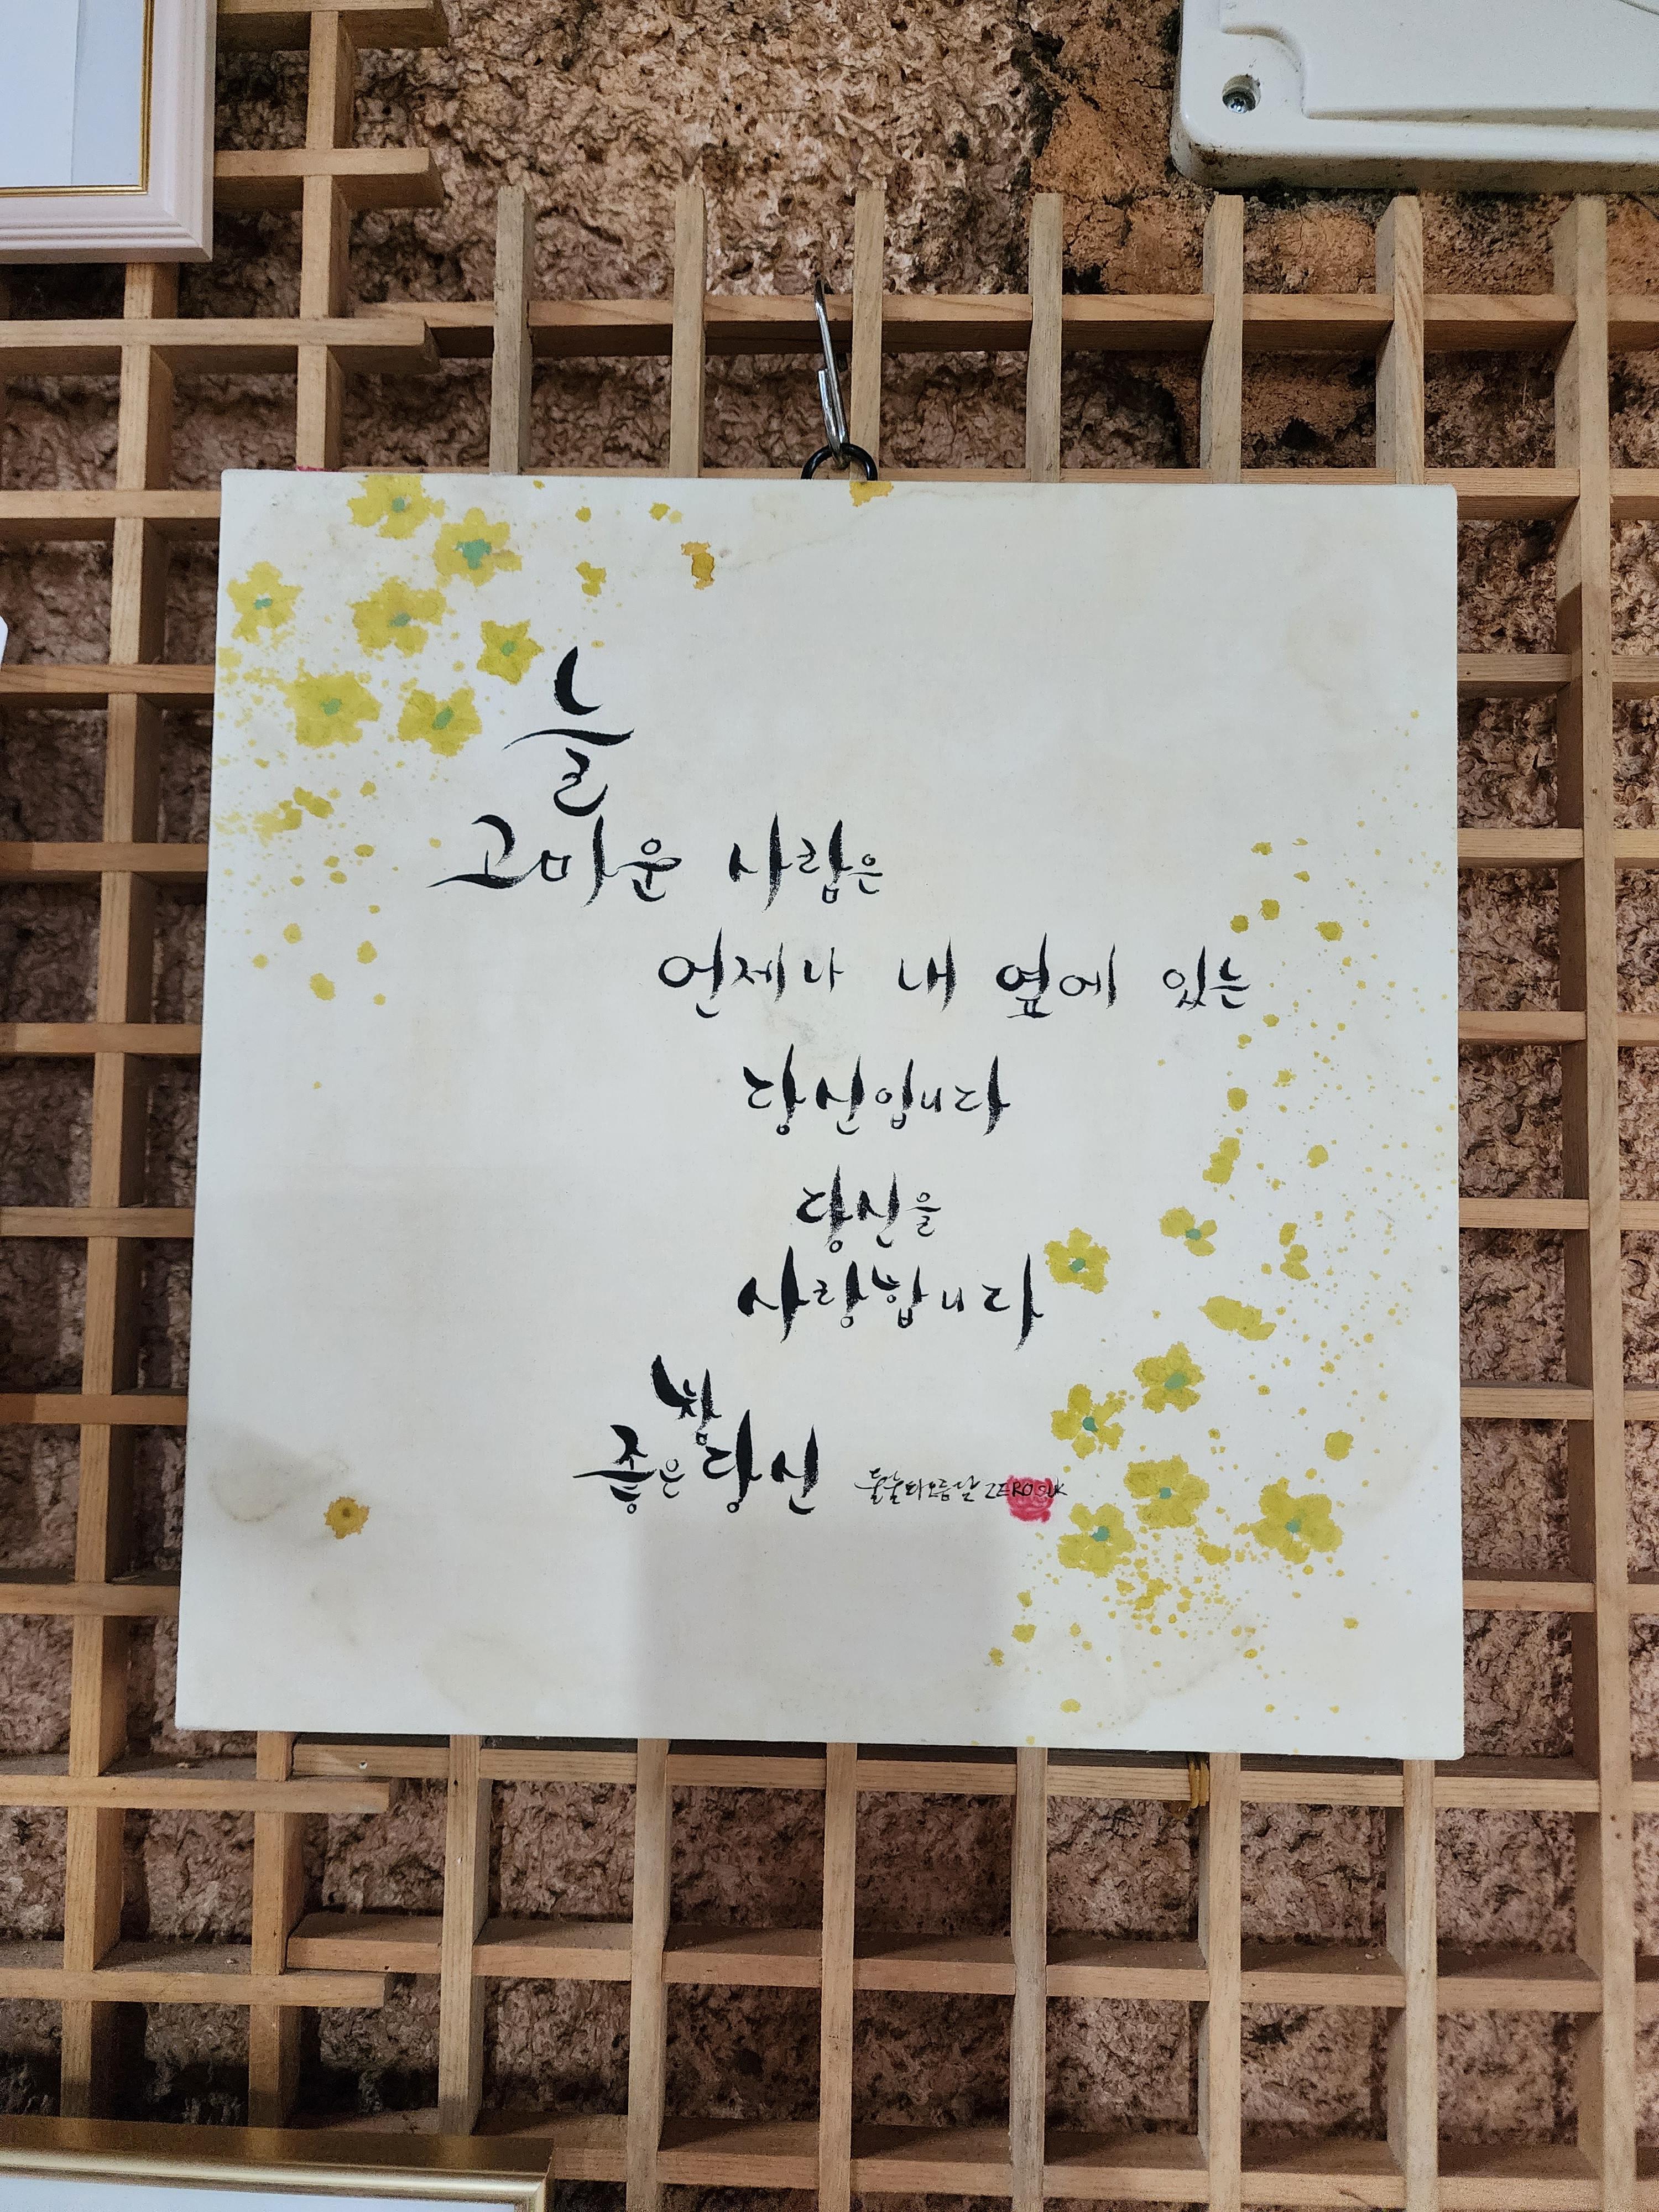 늘
고마운 사람은
언제나 내 옆에 있는
당신입니다
당신을
사랑합니다
참
좋은 당신
ZERO